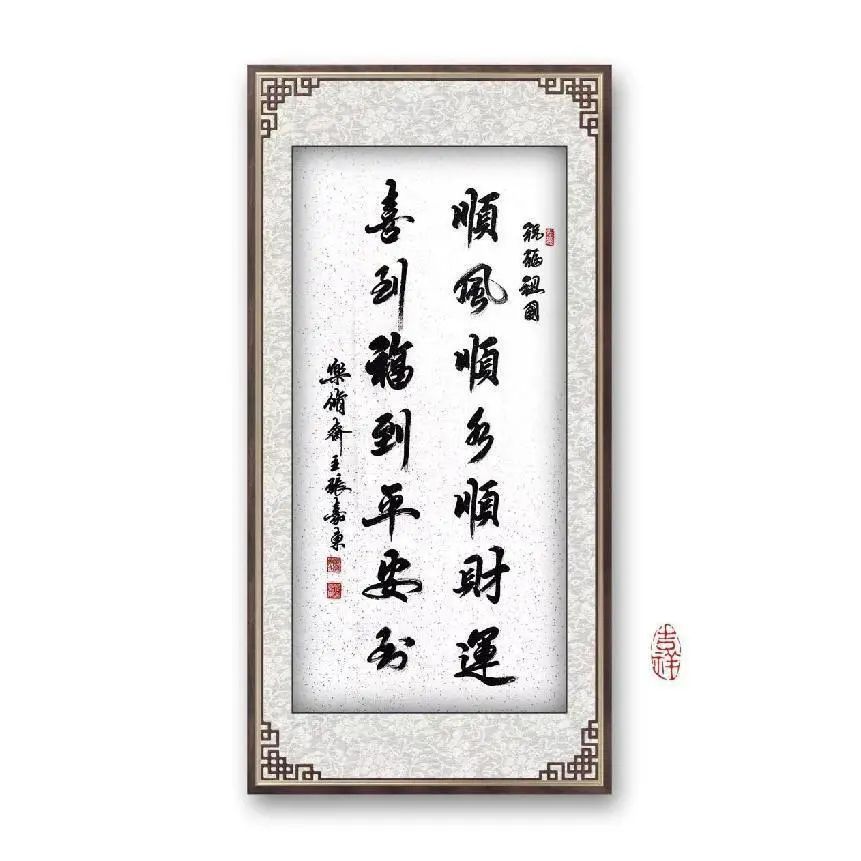 祝福祖國
順風順水順財運
喜到福到平安到
樂脩齋主張嘉東
吉祥